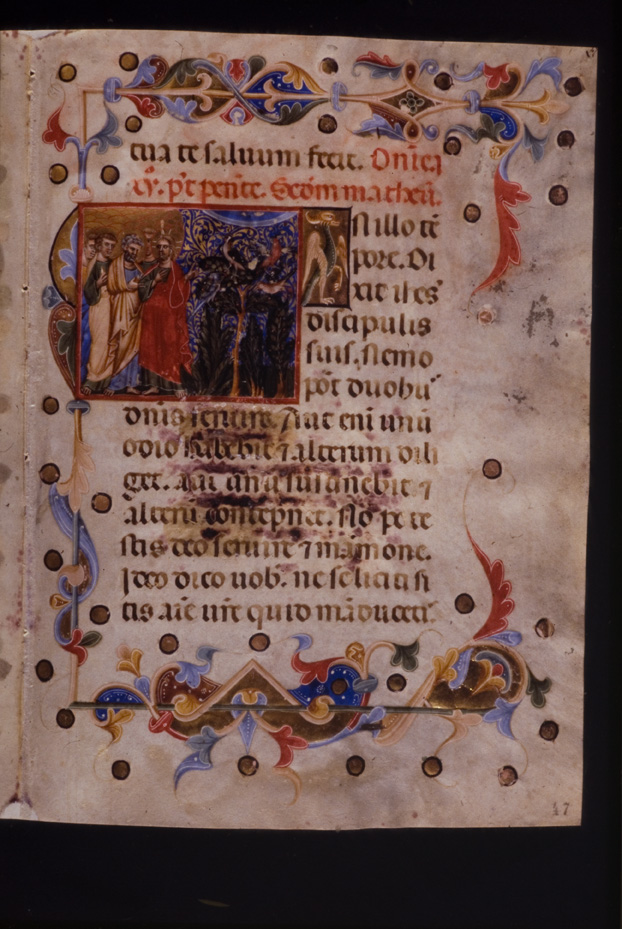 tua te saluum fecit. Dnica
xv. pt pente. Scdm matheū.
In illo tē
pore. Di
xit ihes
discipulis
suis. Nemo
pōt duobu
dnis seruire. Aut enī unū
odio habebit ⁊ alterum dili
get. aut unū sustinebit ⁊
alterū contēpnet. Nō pote
stis deo seruire ⁊ māmone.
Ideo dico uob. ne soliciti si
tis aīe ure quid māducetis
47